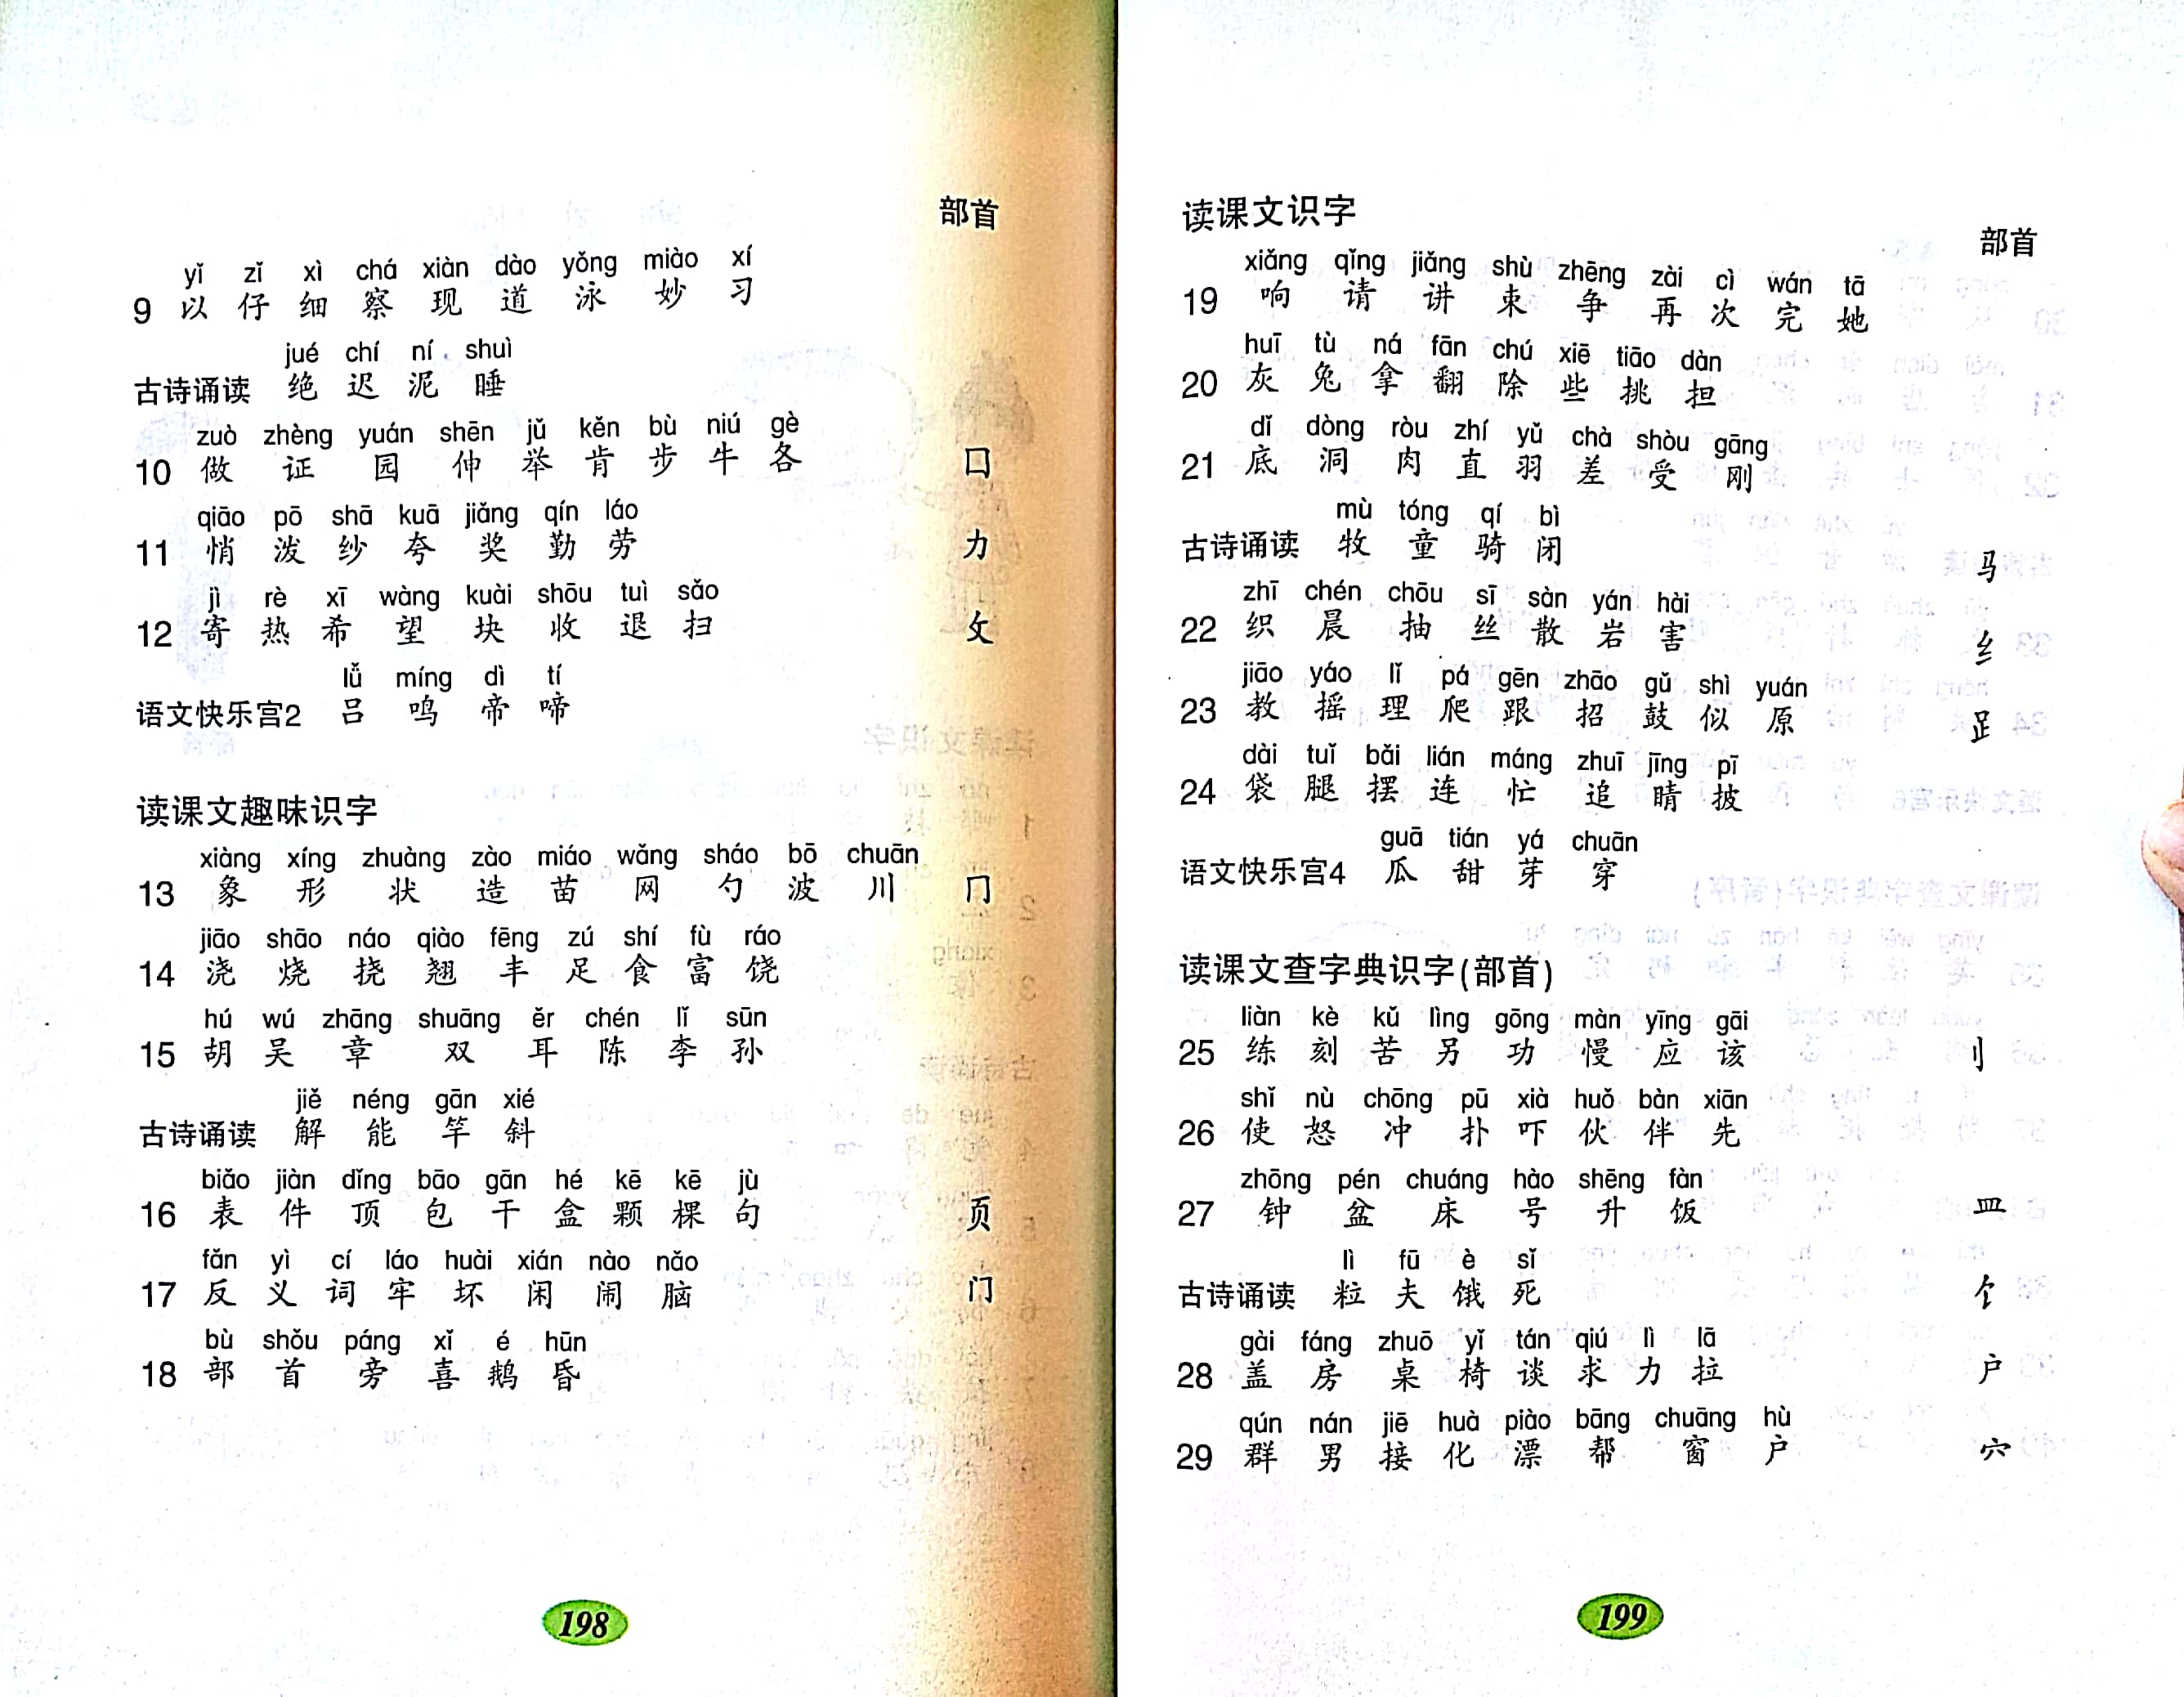 部首
yǐ zǐ xì chá xiàn dào yǒng miào xí
9 以 仔 细 察 现 道 泳 妙 习
jué chí ní shuì
古诗诵读 绝 迟 泥 睡
zuò zhèng yuán shēn jǔ kěn bù niú gè
10 做 证 园 伸 举 肯 步 牛 各 囗
qiāo pō shā kuā jiǎng qín láo
11 悄 泼 纱 夸 奖 勤 劳 力
jì rè xī wàng kuài shōu tuì sǎo
12 寄 热 希 望 块 收 退 扫 攵
lǚ míng dì tí
语文快乐宫2 吕 鸣 帝 啼
读课文趣味识字
xiàng xíng zhuàng zào miáo wǎng sháo bō chuān
13 象 形 状 造 苗 网 勺 波 川 冂
jiāo shāo náo qiào fēng zú shí fù ráo
14 浇 烧 挠 翘 丰 足 食 富 饶
hú wú zhāng shuāng ěr chén lǐ sūn
15 胡 吴 章 双 耳 陈 李 孙
jiě néng gān xié
古诗诵读 解 能 竿 斜
biǎo jiàn dǐng bāo gān hé kē kē jù
16 表 件 顶 包 干 盒 颗 棵 句 页
fǎn yì cí láo huài xián nào nǎo
17 反 义 词 牢 坏 闲 闹 脑 门
bù shǒu páng xǐ é hūn
18 部 首 旁 喜 鹅 昏
198
读课文识字
部首
xiǎng qǐng jiǎng shù zhēng zài cì wán tā
19 响 请 讲 束 争 再 次 完 她
huī tù ná fān chú xiē tiāo dàn
20 灰 兔 拿 翻 除 些 挑 担
dǐ dòng ròu zhí yǔ chà shòu gāng
21 底 洞 肉 直 羽 差 受 刚
mù tóng qí bì
古诗诵读 牧 童 骑 闭 马
zhī chén chōu sī sàn yán hài
22 织 晨 抽 丝 散 岩 害 纟
jiāo yáo lǐ pá gēn zhāo gǔ shì yuán
23 教 摇 理 爬 跟 招 鼓 似 原 𧾷
dài tuǐ bǎi lián máng zhuī jīng pī
24 袋 腿 摆 连 忙 追 睛 披
guā tián yá chuān
语文快乐宫4 瓜 甜 芽 穿
读课文查字典识字(部首)
liàn kè kǔ lìng gōng màn yīng gāi
25 练 刻 苦 另 功 慢 应 该 刂
shǐ nù chōng pū xià huǒ bàn xiān
26 使 怒 冲 扑 吓 伙 伴 先
zhōng pén chuáng hào shēng fàn
27 钟 盆 床 号 升 饭 皿
lì fū è sǐ
古诗诵读 粒 夫 饿 死 饣
gài fáng zhuō yǐ tán qiú lì lā
28 盖 房 桌 椅 谈 求 力 拉 户
qún nán jiē huà piào bāng chuāng hù
29 群 男 接 化 漂 帮 窗 户 穴
199